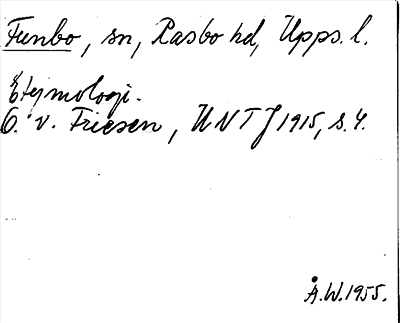 Funbo, sn, Rasbo hd, Upps. l.
Etymologi.
O. v. Friesen, UNTJ 1915, s. 4.
Å.W.1955.